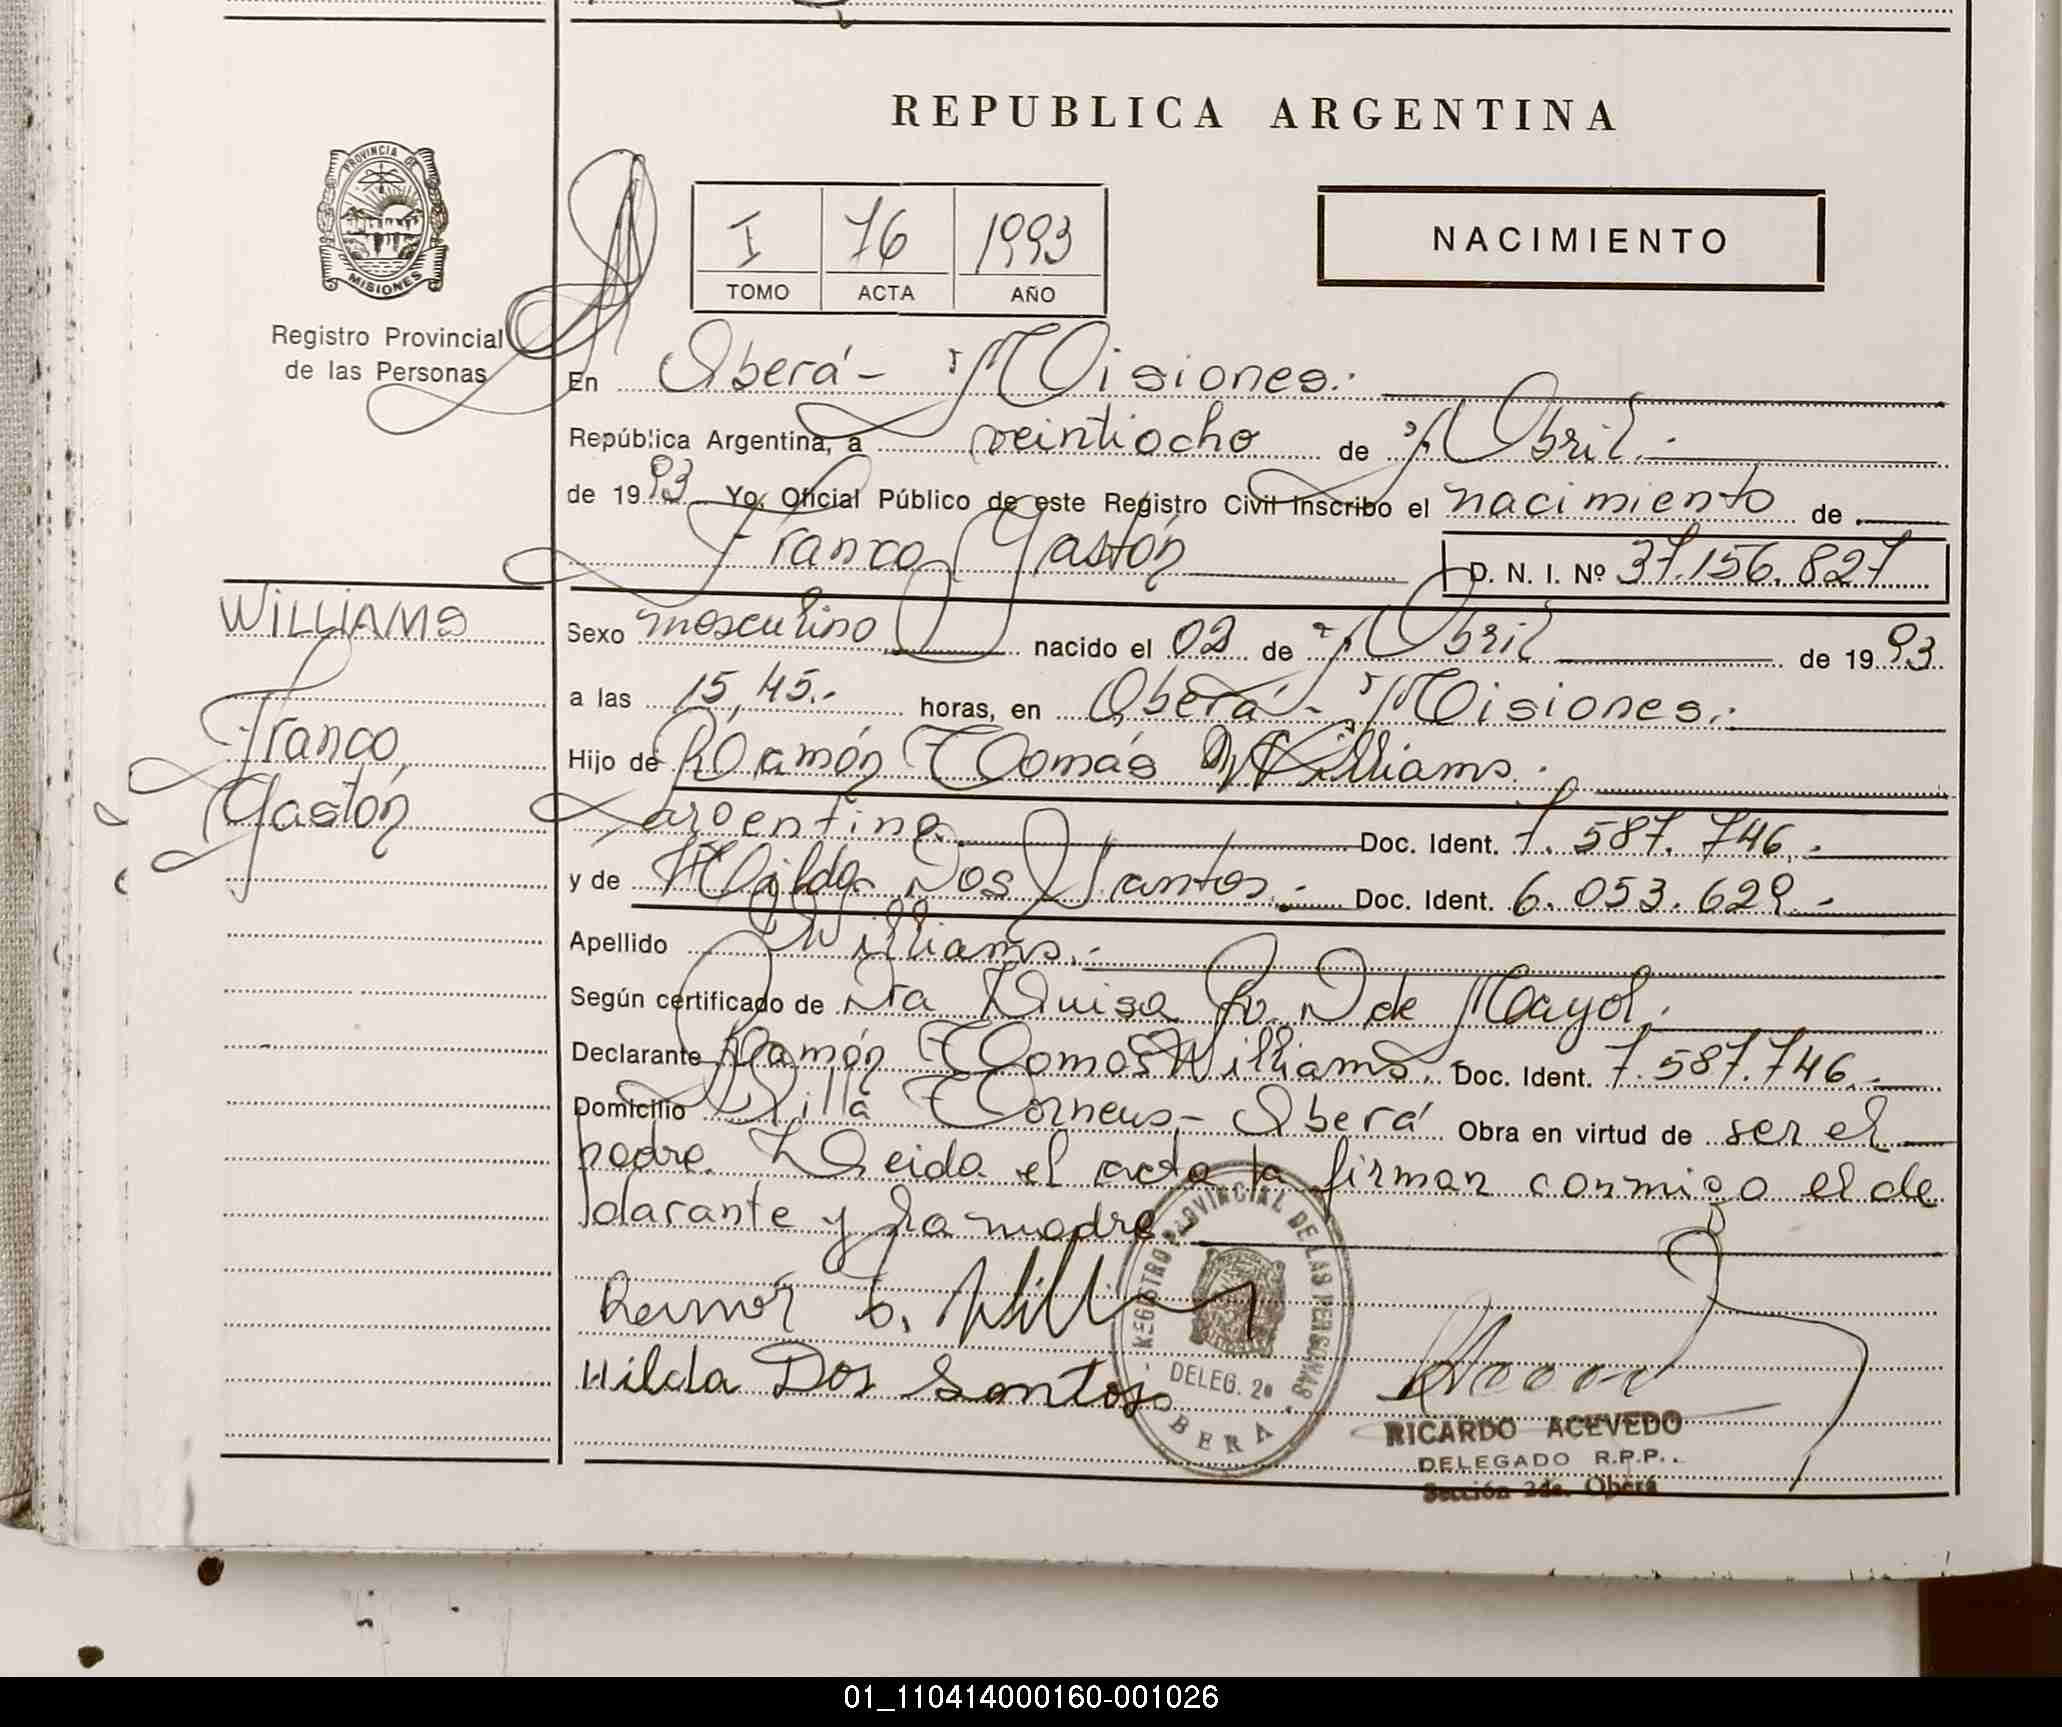 REPUBLICA ARGENTINA
PROVINCIA DE
MISIONES
Registro Provincial
de las Personas
I 76 1993
TOMO ACTA AÑO
NACIMIENTO
En Oberá- Misiones.-
República Argentina, a veintiocho de Abril.-
de 1993 Yo, Oficial Público de este Registro Civil Inscribo el nacimiento de
Franco Gastón D. N. I. Nº 37.156.827
WILLIAMS
Franco
Gastón
Sexo masculino nacido el 02 de Abril de 1993
a las 15,45.- horas, en Oberá- Misiones.-
Hijo de Ramón Tomás Williams.-
argentino Doc. Ident. 7.587.746.-
y de Hilda Dos Santos.- Doc. Ident. 6.053.629.-
Apellido Williams.-
Según certificado de Dra Luisa D de Mayol.-
Declarante Ramón Tomás Williams. Doc. Ident. 7.587.746.-
Domicilio Villa Torneus- Oberá Obra en virtud de ser el
padre. Leida el acta la firman conmigo el de
clarante y la madre.
Ramón T. Will
Hilda Dos Santos
REGISTRO PROVINCIAL DE LAS PERSONAS
DELEG. 2a
OBERA
RICARDO ACEVEDO
DELEGADO R.P.P.
Sección 2da. Oberá
01_110414000160-001026